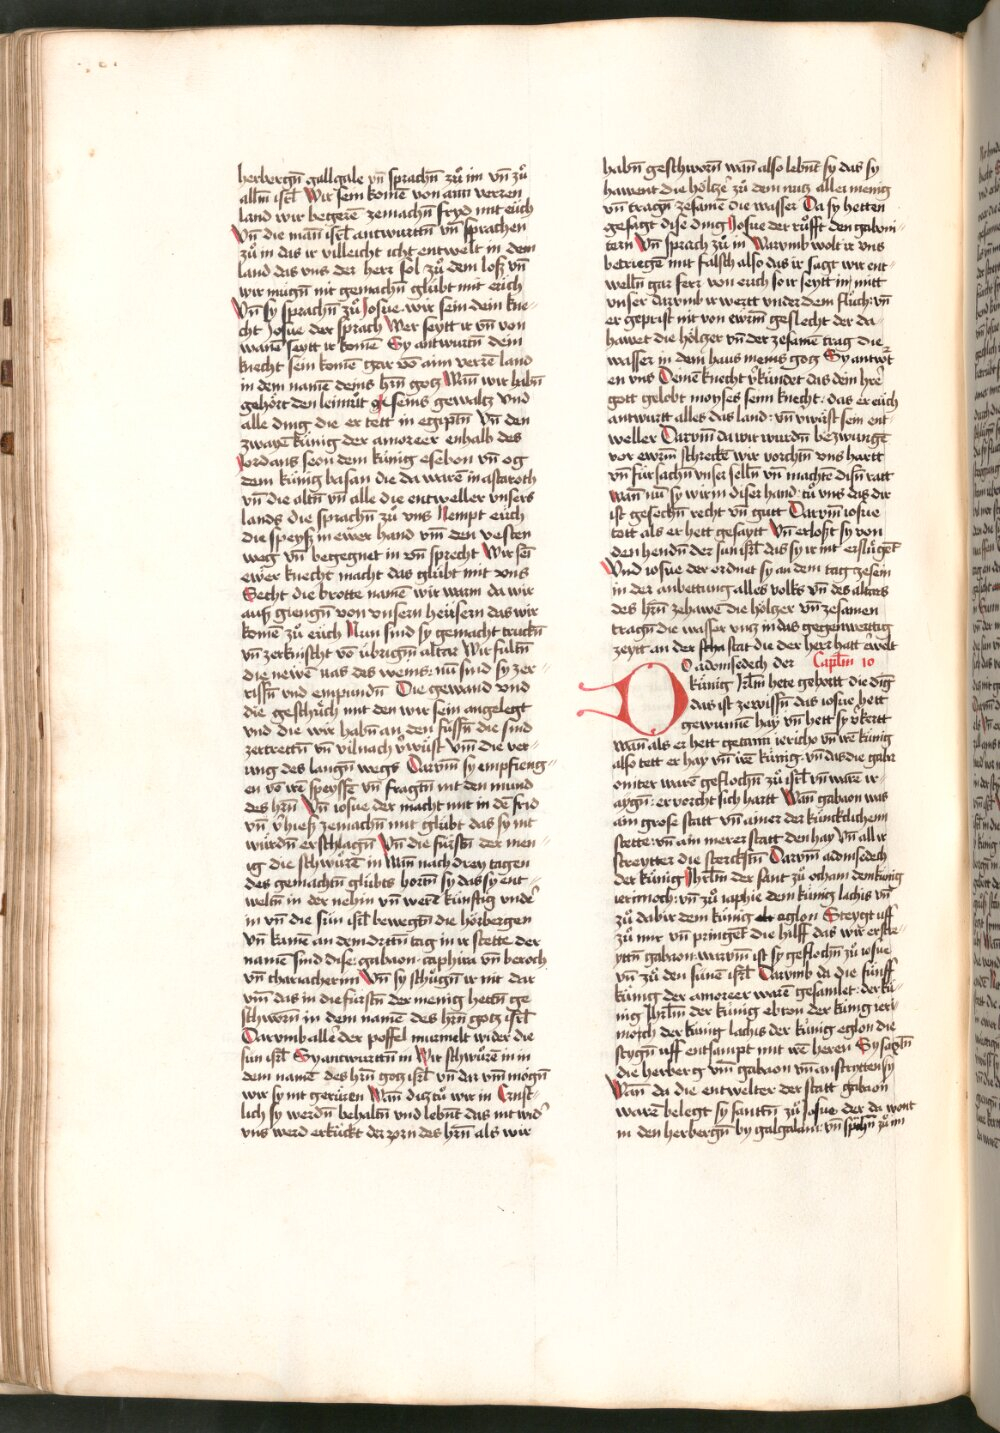 herbergn̄ gallgale vn̄ sprachn̄ zů im vn̄ zů
allm̄ isrl̄ Wir sein komē von ain verren
land wir begerē zemachn̄ fryd mit eüch
Vn̄ die man̄ isrl̄ antwurttn̄ vn̄ sprachen
zů in das ir villeicht icht entwelt in dem
land das vns der herr sol zů dem losz vn̄
wir mügn̄ nit gemachn̄ glübt mit eüch
Vn̄ sy sprachn̄ zů Josue wir sein dein kne-
cht Josue der sprach Wer seytt ir vn̄ von
wanē seytt ir komē Sy antwurtn̄ dein
knecht sein komē gar vō aim verrē land
in dem namē deins hrn̄ gotz Wan̄ wir habn̄
gehört den leimut seins gewaltz vnd
alle ding die er tett in egiptn̄ Vn̄ den
zwayē künig der amoreer enhalb des
Jordans seon dem künig esebon vn̄ og
dem künig basan die da warē in astaroth
vn̄ die altn̄ vn̄ alle die entweller vnsers
lands die sprachn̄ zů vns Nempt eüch
die speysz in ewer hand vm̄ den vesten
weg vn̄ begegnet in vn̄ sprecht Wir sei
ewer knecht macht das glübt mit vns
Secht die brotte namē wir warm da wir
ausz giengn̄ von vnsern heüsern das wir
komē zů eüch Nun sind sy gemacht truckn̄
vn̄ zerknischt vō übrigm̄ altar Wir fultn̄
die newē uas des weins nu sind sy zer-
rissn̄ vnd empundn̄ Die gewand vnd
die geschüch mit den wir sein angelegt
vnd die wir habn̄ an den füssn̄ die sind
zertrettn̄ vn̄ vilnach v̓wüst vm̄ die ver-
ung des langn̄ wegs Darvm̄ sy empfieng-
en vō irē speyssē vn̄ fragtn̄ nit den mund
des hrn̄ Vn̄ iosue der macht mit in dē frid
vn̄ v̓hiesz zemachn̄ mit glübt das sy nit
würdn̄ erschlagn̄ Vn̄ die fürstn̄ der men-
ig die schwürē in Wan̄ nach drey tagen
des gemachtn̄ glübts hortn̄ sy das sy ent-
weltn̄ in der nehin vn̄ werē künftig vnder
in vn̄ die sün isrl̄ bewegtn̄ die hörbergen
vn̄ kamē an dem drittn̄ tag in ir stette der
namē sind dise gabaon caphira vn̄ beroch
vn̄ chariacherim Vn̄ sy schlügn̄ ir nit dar
vm̄ das in die fürstn̄ der menig hettn̄ ge
schworn̄ in dem namē des hrn̄ gotz isrl̄
Darumb aller der poffel murmelt wider die
sün isrl̄ Sy antwurttn̄ in Wir schwürē in in
dem namē des hrn̄ gotz isrl̄ vn̄ dar vm̄ mögn̄
wir sy nit gerürren Wan̄ daz tů wir in Ernst-
lich sy werdn̄ behaltn̄ vnd lebnt das nit wid̓
vns werd erkückt der zorn des hrn̄ als wir
habn̄ geschworn̄ wan̄ also lebnt sy das sy
hawent die höltzer zů dem nutz aller menig
vn̄ tragn̄ zesamē die wasser Da sy hetten
gesagt dise ding Josue der růfft den gaboni-
tern Vn̄ sprach zů in Warvmb wolt ir vns
betriegē mit falsch also das ir sagt wir ent-
welln̄ gar ferr von eüch so ir seytt in mitt
vnser Darvmb ir wertt vnder dem flůch vn̄
er geprist nit von ewrm̄ geslecht der da-
hawet die höltzer vn̄ der zesamē trag die
wasser in dem haus meins gotz Sy antwort
en vns Deinē knecht v̓kündet das dein herr
gott gelobt moyses seim knecht das er eüch
antwurtt alles das land vn̄ v̓wüst sein ent-
weller Darvm̄ da wir wurdn̄ bezwungē
vor ewrm̄ schreckē wir vorchtn̄ vns hartt
vn̄ für sachn̄ vnser selln̄ vn̄ machtē disn̄ ratt
Wan̄ nu sy wir in diser hand tů vns das dir
ist gesechn̄ recht vn̄ gutt Darvm̄ iosue
tett als er hett gesaytt Vn̄ erloszt sy von
den hendn̄ der sün isrl̄ das sy ir nit erslügē
Vnd iosue der ordnet sy an dem tag ze sein
in der anbettung alles volks vn̄ des altars
des hrn̄ zehawē die höltzer vn̄ zesamen
tragn̄ die wasser vntz in das gegenwertig
zeytt an der stat die der herr hatt erwelt
Do adonisedech der Capl̄m 10
künig Jrl̄m hete gehortt die dig
das ist zewissn̄ das iosue hett
gewunnē hay vn̄ hett sy v̓kertt
wan̄ als er hett getan ierichо vn̄ irē künig
also tett er hay vn̄ irē künig vn̄ das die gaba
oniter warē geflochn̄ zů isrl̄ vn̄ warē ir
aygn̄ er vorcht sich hartt Wan̄ gabaon was
ain grose statt vn̄ ainer der künklichenn
stette vn̄ ain merer statt den hay Vn̄ all ir
streytter die sterckstn̄ Darvm̄ adonisedech
der künig Jhrl̄m der sant zů ocham dem künig
ierimoch vn̄ zů iaphie dem künig lachis vn̄
zů dabir dem künig eglon Steygt uff
zů mir vn̄ pringet die hilff das wir erstre-
yttn̄ gabaon warvm̄ ist sy geflochn̄ zů iosue
vn̄ zů den sünē isrl̄ Darvmb da die fünff
künig der amoreer warē gesamlet der kü-
nig Jhrl̄m der künig ebron der künig ieri-
moth der künig lachis der künig eglon die
stygn̄ uff entsampt mit irē heren Sy saztn̄
die herberg vm̄ gabaon vn̄ anstrytten sy
Wan̄ da die entwelter der statt gabaon
warē belegt sy santtn̄ zů Josue der da wont
in den herbergn̄ by galgalam vn̄ sprachn̄ zů im